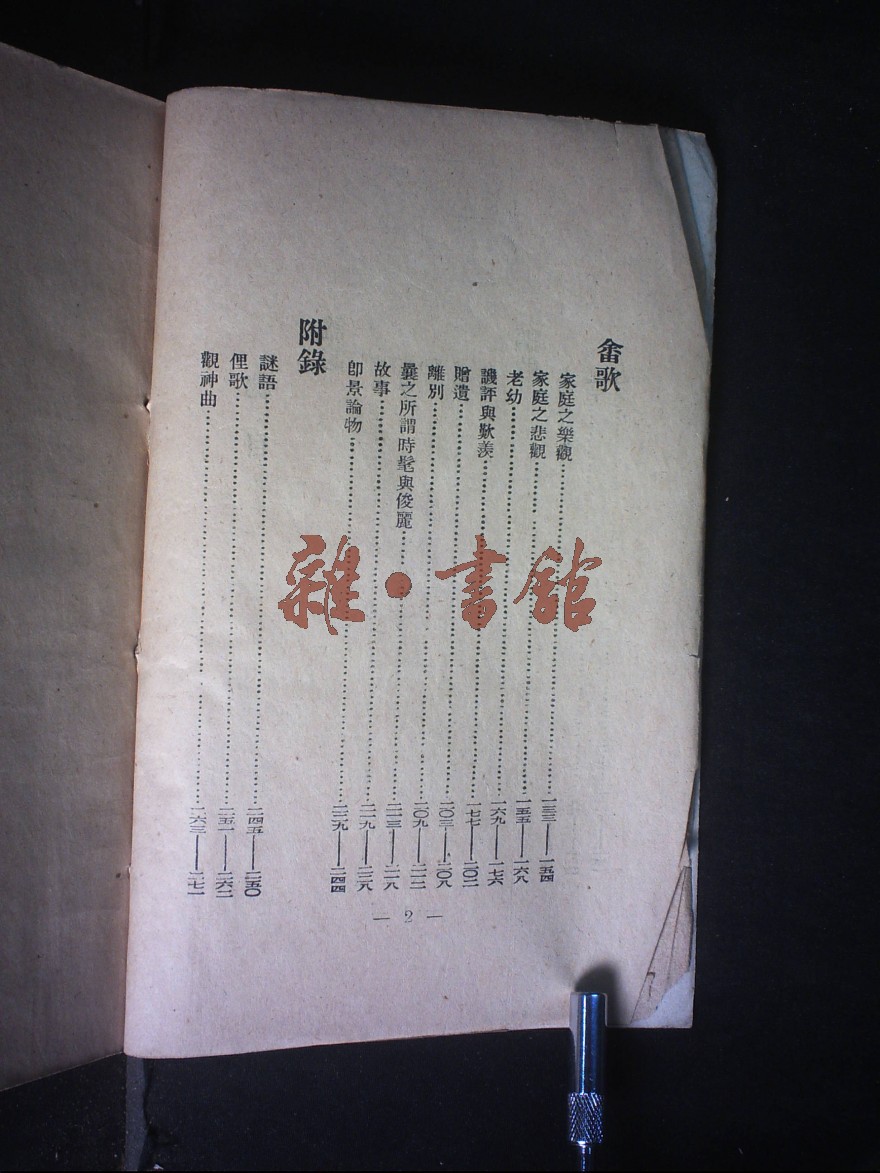 畬歌
家庭之樂觀……一三三——一五四
家庭之悲觀……一五五——一六八
老幼……一六九——一七六
譏評與歎羨……一七七——二〇二
贈遺……二〇三——二〇八
離別……二〇九——二一二
曩之所謂時髦與俊麗……二一三——二一八
故事……二一九——二二八
即景論物……二二九——二四四
附錄
謎語……二四五——二五〇
俚歌……二五一——二六二
觀神曲……二六三——二七一
— 2 —
雜·書館